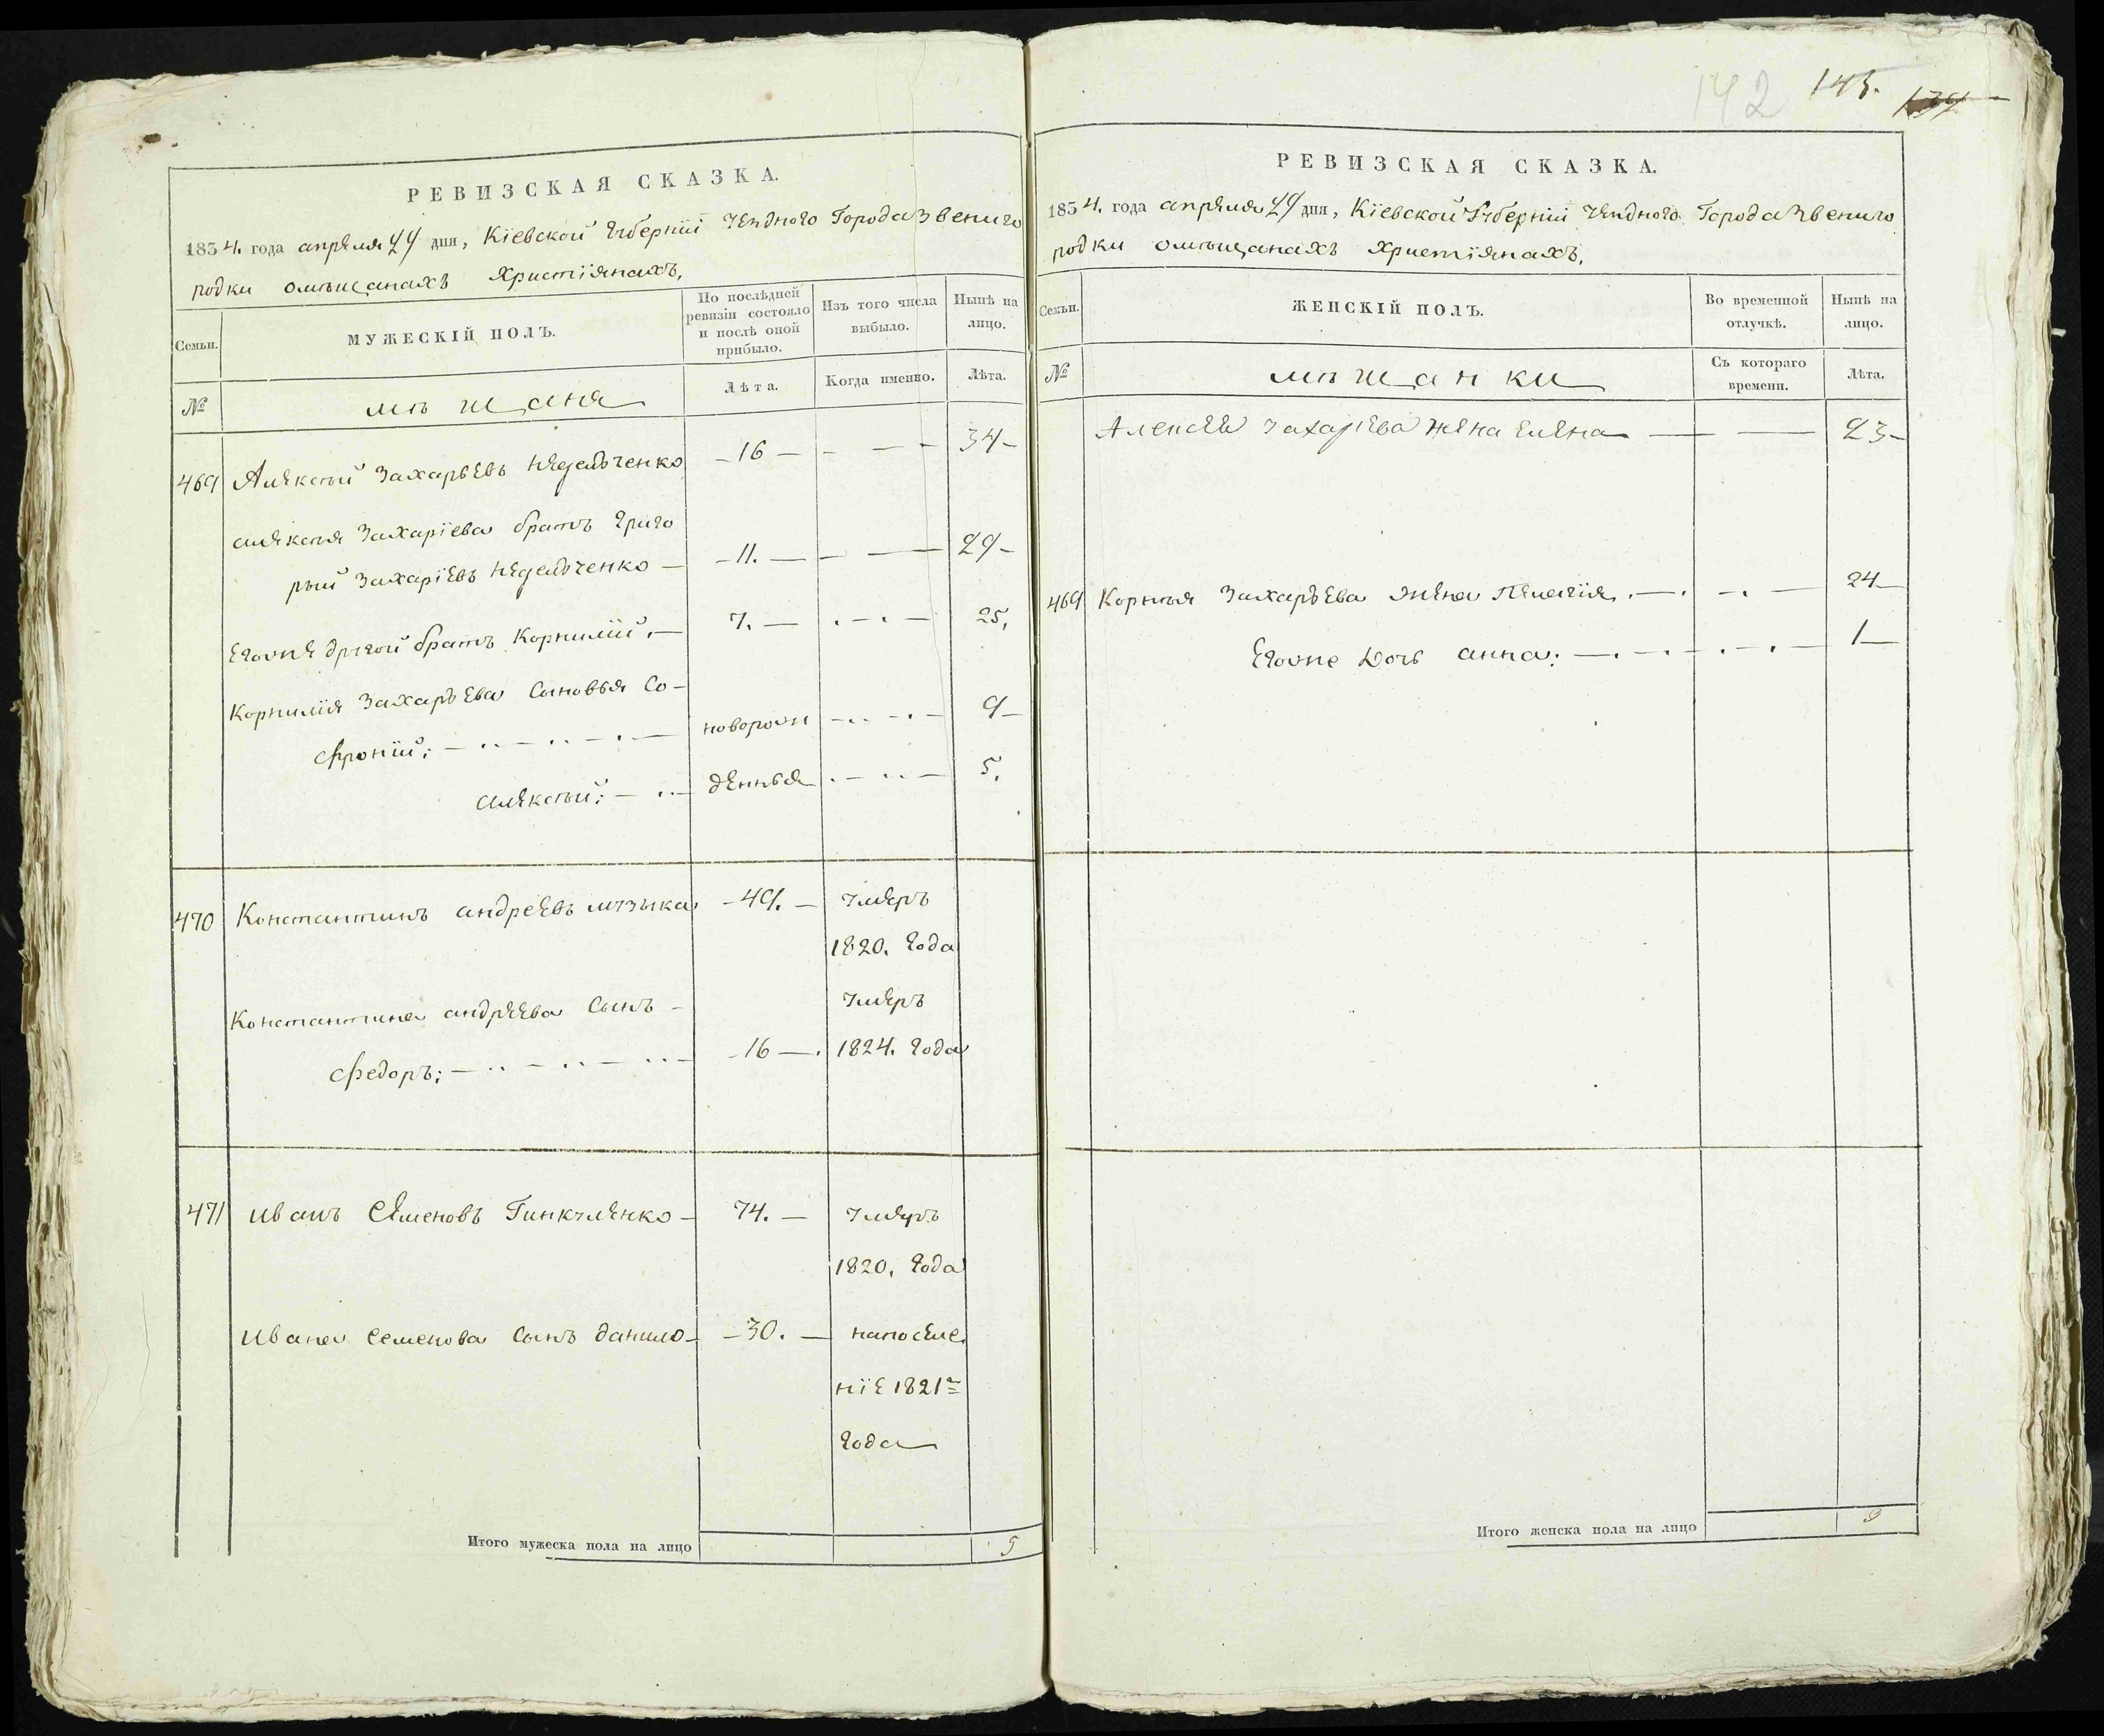 РЕВИЗСКАЯ СКАЗКА.
1834. года апреля 29 дня, Кіевской Губерніи Уезднаго Города Звениго
родки омещанахъ Христіянахъ,
Семьи.
МУЖЕСКІЙ ПОЛЪ.
По послѣдней ревизіи состояло и послѣ оной прибыло.
Изъ того числа выбыло.
Нынѣ на лицо.
№
мещаня
Лѣта.
Когда именно.
Лѣта.
469 Алексей Захарьевъ Недельченко — 16 — — — 34 —
алексея Захаріева братъ Григо
рый Захаріевъ Недельченко — — 11. — — — 29 —
Егоже другой братъ Корнилій. — 7. — . — . — 25.
Корнилія Захарьева Сыновья Со-
фроній; новорож 9 —
алексей; денныя 5.
470 Константинъ андреевъ музыка — 49. — умеръ
1820. года
Константина андреева Сынъ — умеръ
федоръ; — 16 — . 1824. года
471 иванъ Семеновъ Гинкуленко — 74. — умеръ
1820. года
ивана Семенова Сынъ данило — — 30. — напоселе
ніе 1821го
года
Итого мужеска пола на лицо 5
142 145.
РЕВИЗСКАЯ СКАЗКА.
1834. года апреля 29 дня, Кіевской Губерніи Уезднаго Города Звениго
родки омещанахъ Христіянахъ,
Семьи.
ЖЕНСКІЙ ПОЛЪ.
Во временной отлучкѣ.
Нынѣ на лицо.
№
мещанки
Съ котораго времени.
Лѣта.
Алексея Захарьева жена Елена — — 23 —
469 Корнея Захарьева жена Пелагія. — . — . — 24 —
Егоже дочь анна; — . — . — . — 1 —
Итого женска пола на лицо